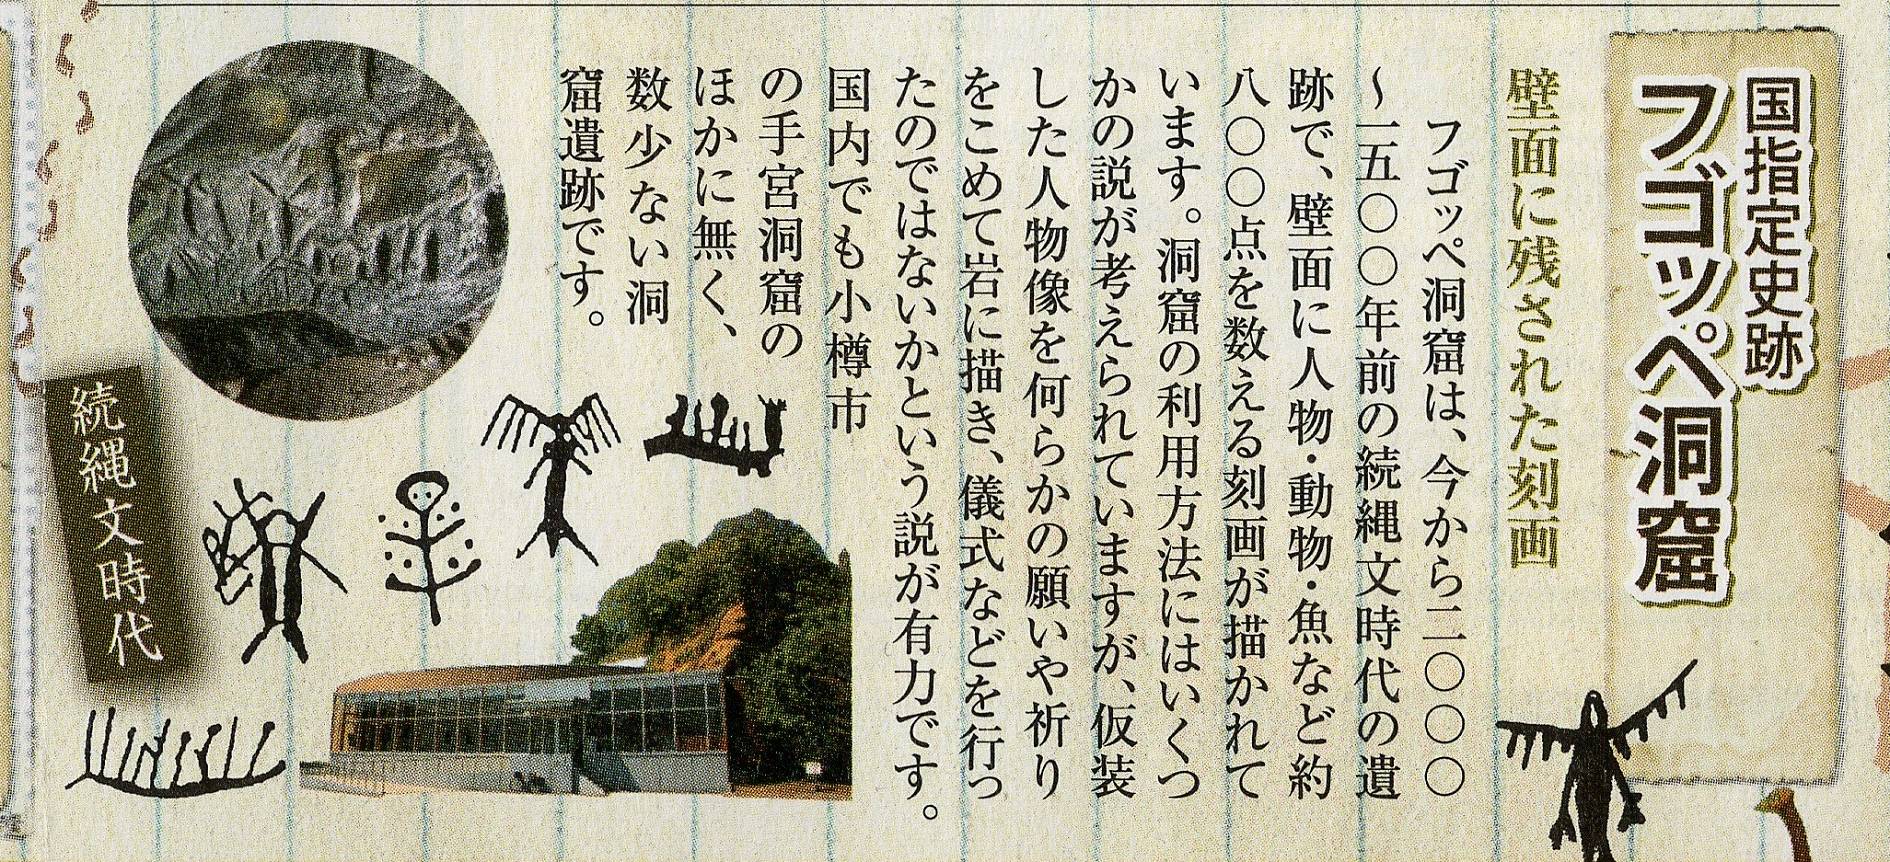 国指定史跡
フゴッペ洞窟
壁面に残された刻画
フゴッペ洞窟は、今から二〇〇〇
～一五〇〇年前の続縄文時代の遺
跡で、壁面に人物・動物・魚など約
八〇〇点を数える刻画が描かれて
います。洞窟の利用方法にはいくつ
かの説が考えられていますが、仮装
した人物像を何らかの願いや祈り
をこめて岩に描き、儀式などを行っ
たのではないかという説が有力です。
国内でも小樽市
の手宮洞窟の
ほかに無く、
数少ない洞
窟遺跡です。
続縄文時代